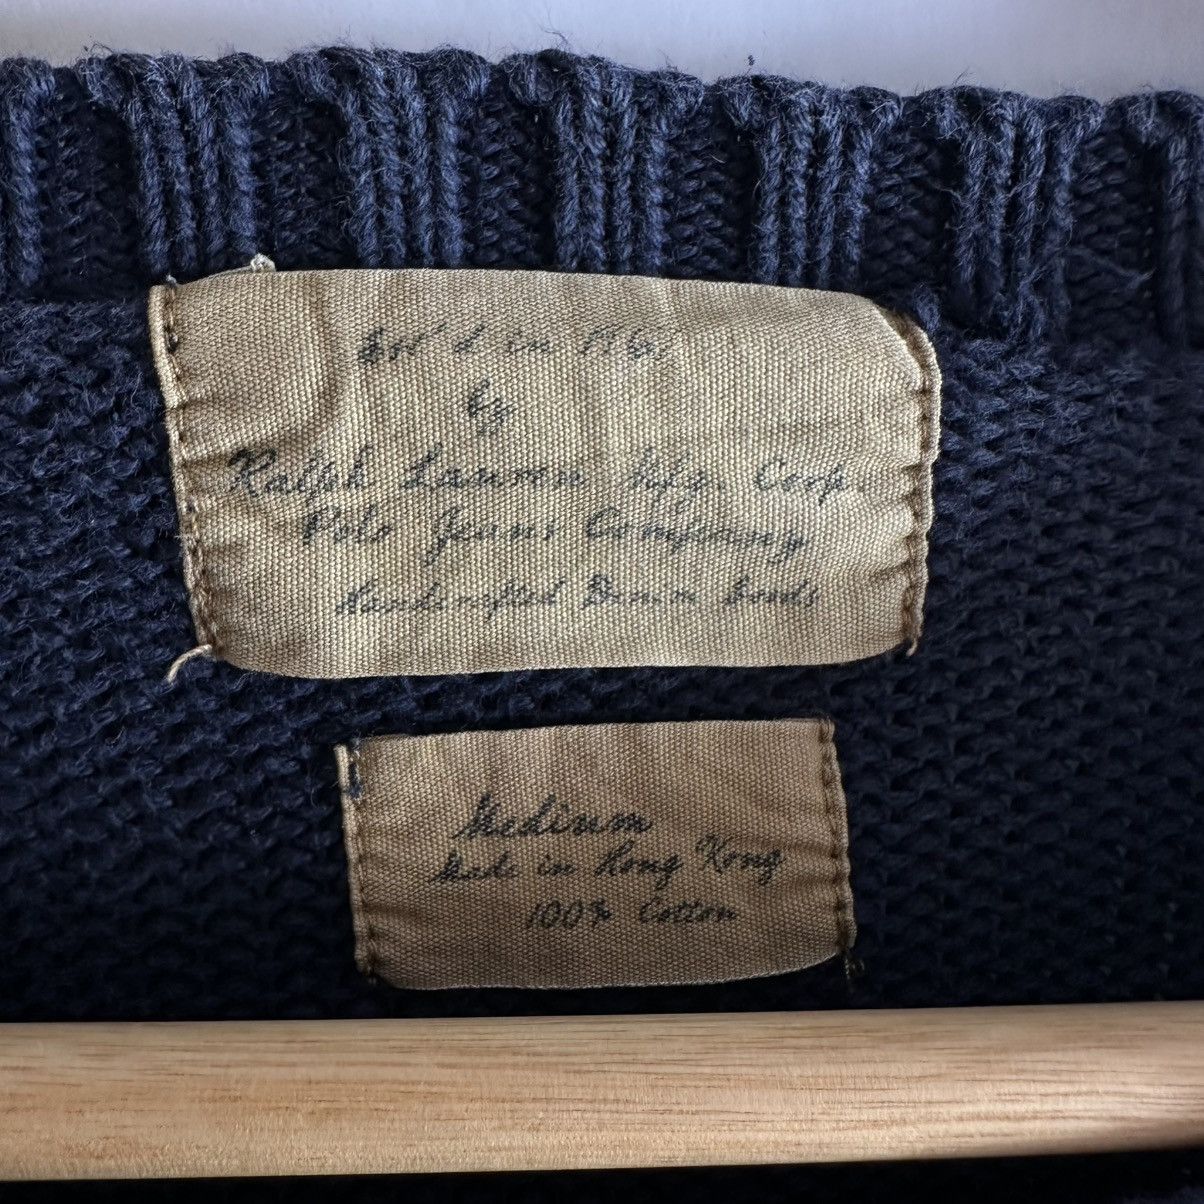 Est'd in 1967
by
Ralph Lauren Mfg. Corp.
Polo Jeans Company
Handcrafted Denim Goods
Medium
Made in Hong Kong
100% Cotton